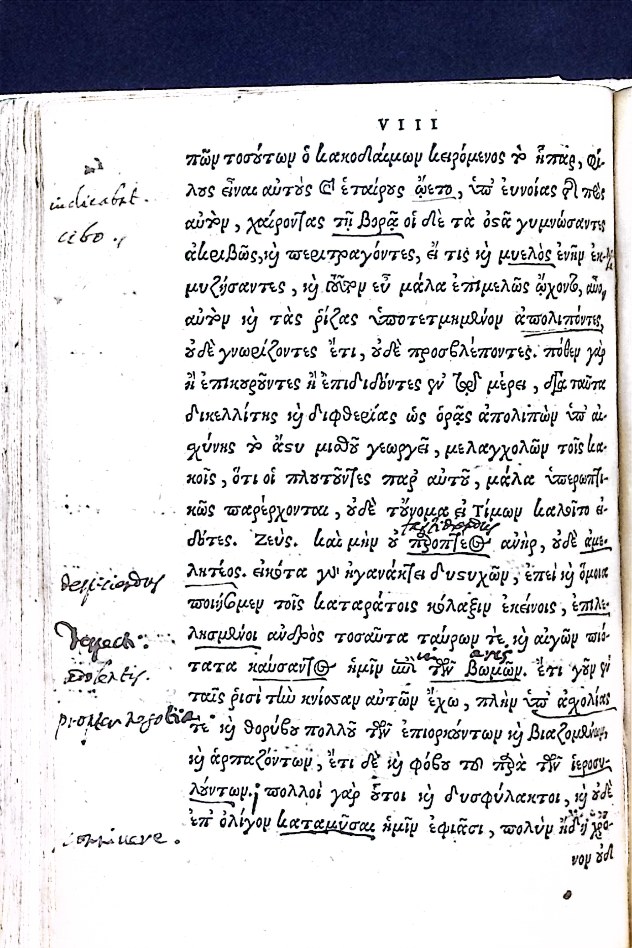 VIII
πῶν τοσούτων ὁ κακοδαίμων κειρόμενος τὸ ἧπαρ, φί-
indicabat.
λους εἶναι αὐτοὺς καὶ ἑταίρους ᾤετο, ὑπ' εὐνοίας τῆς πρὸς
cibo.
αὐτὸν, χαίροντας τῇ βορᾷ οἱ δὲ τὰ ὀστᾶ γυμνώσαντες
ἀκριβῶς, καὶ περιτραγόντες, εἴ τις καὶ μυελὸς ἐνῆν ἐκ-
μυζήσαντες, καὶ τοῦτον εὖ μάλα ἐπιμελῶς ᾤχοντο, αὖον
αὐτὸν καὶ τὰς ῥίζας ὑποτετμημένον ἀπολιπόντες,
οὐδὲ γνωρίζοντες ἔτι, οὐδὲ προσβλέποντες. πόθεν γὰρ
ἢ ἐπικουροῦντες ἢ ἐπιδιδόντες ἐν τῷ μέρει, διὰ ταῦτα
δικελλίτης καὶ διφθερίας ὡς ὁρᾷς ἀπολιπὼν ὑπ' αἰ-
χύνης τὸ ἄστυ μισθοῦ γεωργεῖ, μελαγχολῶν τοῖς κα-
κοῖς, ὅτι οἱ πλουτοῦντες παρ' αὐτοῦ, μάλα ὑπεροπτι-
κῶς παρέρχονται, οὐδὲ τοὔνομα εἰ Τίμων καλοῖτο εἰ-
δότες. Ζεύς. καὶ μὴν οὐ παροπτέος ἀνὴρ, οὐδὲ ἀμε-
despiciendus
λητέος. εἰκότα γὰρ ἠγανάκτει δυστυχῶν, ἐπεὶ καὶ ὅμοια
ποιήσομεν τοῖς καταράτοις κόλαξιν ἐκείνοις, ἐπιλε-
λησμένοι ἀνδρὸς τοσαῦτα ταύρων τε καὶ αἰγῶν πιό-
τατα καύσαντος ἡμῖν ἐπὶ τῶν βωμῶν. ἔτι γοῦν ἐν
ταῖς ῥισὶ τὴν κνίσαν αὐτῶν ἔχω, πλὴν ὑπ' ἀχολίας
τε καὶ θορύβου πολλοῦ τῶν ἐπιορκούντων καὶ βιαζομένων,
καὶ ἁρπαζόντων, ἔτι δὲ καὶ φόβου τοῦ παρὰ τῶν ἱεροσυ-
λούντων. πολλοὶ γὰρ οὗτοι καὶ δυσφύλακτοι, καὶ οὐδὲ
ἐπ' ὀλίγον καταμῦσαι ἡμῖν ἐφιᾶσι, πολὺν ἤδη χρό-
νον οὐδὲ